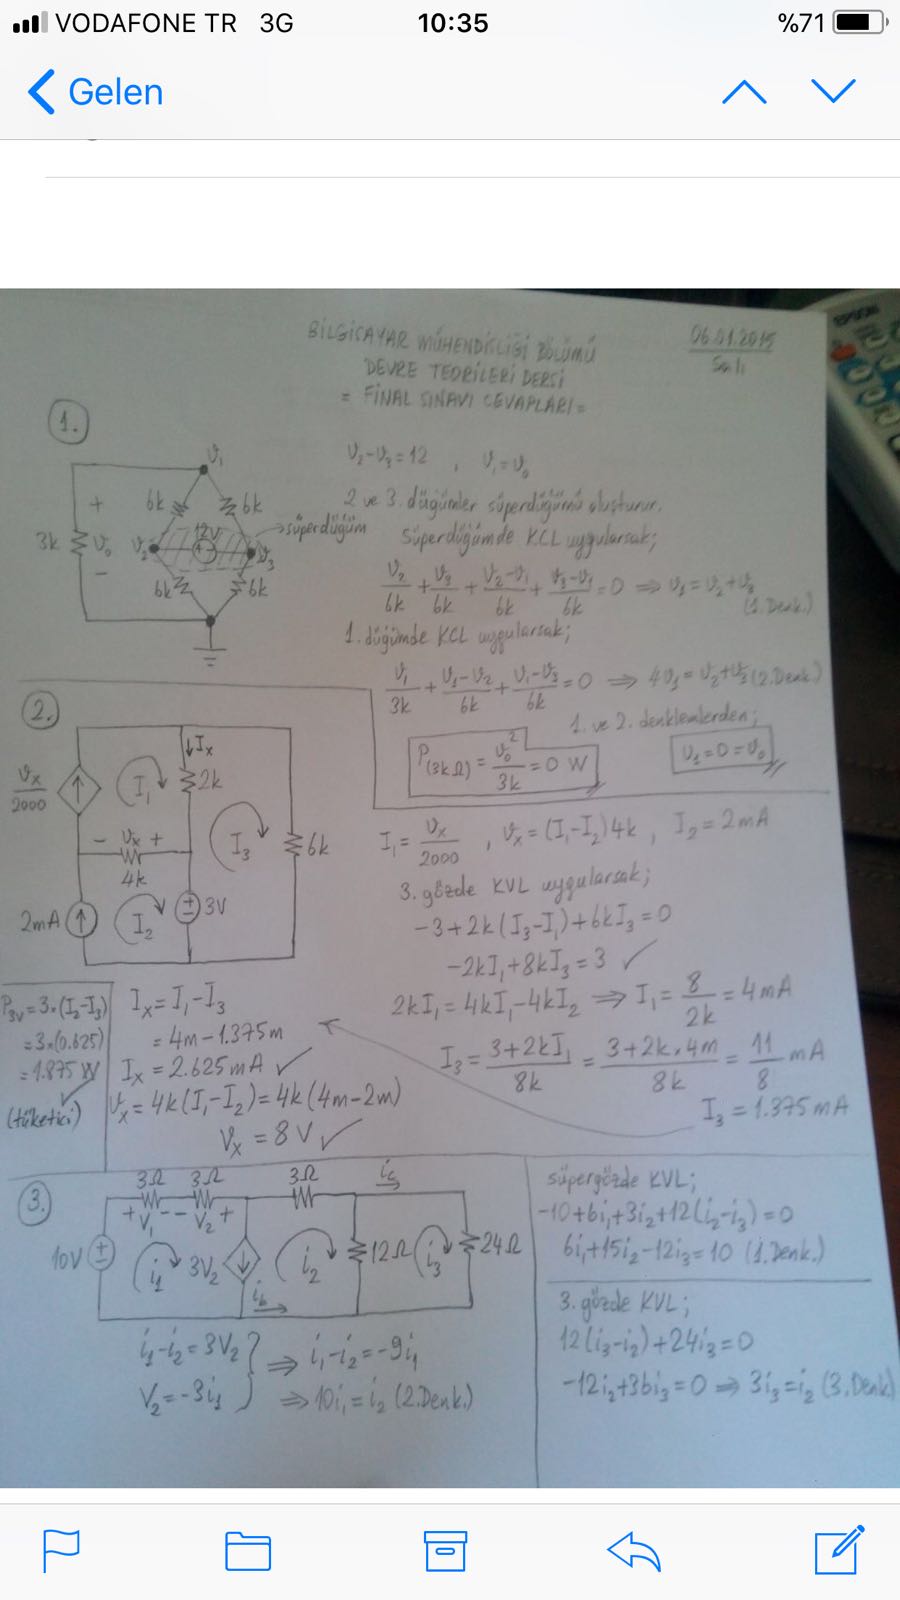 VODAFONE TR 3G 10:35 %71
Gelen
EPSON
BİLGİSAYAR MÜHENDİSLİĞİ BÖLÜMÜ
DEVRE TEORİLERİ DERSİ
= FİNAL SINAVI CEVAPLARI =
06.01.2015
Salı
1.
V₁
6k 6k
3k + V₀ −
V₂ 12V V₃
süperdüğüm
6k 6k
V₂-V₃=12 , V₁=V₀
2 ve 3. düğümler süperdüğümü oluşturur.
Süperdüğümde KCL uygularsak;
V₂/6k + V₃/6k + (V₂-V₁)/6k + (V₃-V₁)/6k = 0 ⇒ V₁=V₂+V₃
(1.Denk.)
1.düğümde KCL uygularsak;
V₁/3k + (V₁-V₂)/6k + (V₁-V₃)/6k = 0 ⇒ 4V₁=V₂+V₃ (2.Denk.)
1. ve 2. denklemlerden;
P(3kΩ) = V₀²/3k = 0 W
V₁=0=V₀
2.
Vx/2000
I₁
↓Ix
2k
− Vx +
4k
I₃
6k
2mA
I₂
3V
I₁ = Vx/2000 , Vx=(I₁-I₂)4k , I₂=2mA
3. gözde KVL uygularsak;
-3+2k(I₃-I₁)+6kI₃=0
-2kI₁+8kI₃=3 ✓
2kI₁=4kI₁-4kI₂ ⇒ I₁ = 8/2k = 4mA
I₃ = (3+2kI₁)/8k = (3+2k.4m)/8k = 11/8 mA
I₃=1.375mA
P3V=3.(I₂-I₃)
=3×(0.625)
=1.875 W
(tüketici)
Ix=I₁-I₃
=4m-1.375m
Ix=2.625mA ✓
Vx=4k(I₁-I₂)=4k(4m-2m)
Vx=8V ✓
3.
3Ω 3Ω 3Ω ic
+V₁− −V₂+
10V
i₁
3V₂
i₂
12Ω
i₃
24Ω
ib
i₁-i₂=3V₂
V₂=-3i₁
⇒ i₁-i₂=-9i₁
⇒ 10i₁=i₂ (2.Denk.)
süpergözde KVL;
-10+6i₁+3i₂+12(i₂-i₃)=0
6i₁+15i₂-12i₃=10 (1.Denk.)
3. gözde KVL;
12(i₃-i₂)+24i₃=0
-12i₂+36i₃=0 ⇒ 3i₃=i₂ (3.Denk)